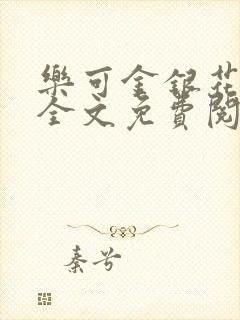 樂可金銀花
全文免費閱
秦兮